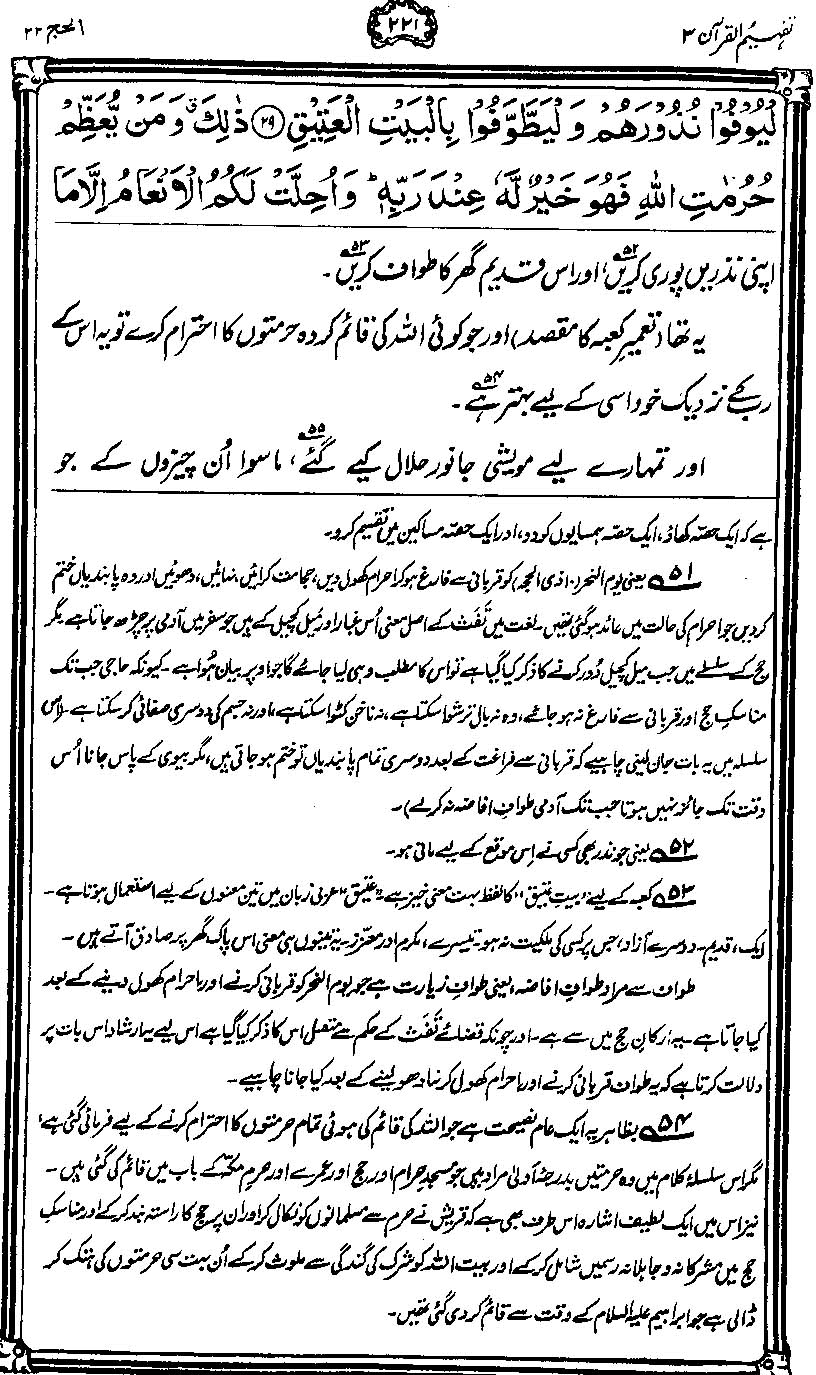 تفہیم القرآن ۳
۲۲۱
الحج ۲۲
لْيُوْفُوْا نُذُوْرَهُمْ وَلْيَطَّوَّفُوْا بِالْبَيْتِ الْعَتِيْقِ ﴿۲۹﴾ ذٰلِكَ ۗ وَمَنْ يُّعَظِّمْ
حُرُمٰتِ اللّٰهِ فَهُوَ خَيْرٌ لَّهٗ عِنْدَ رَبِّهٖ ؕ وَاُحِلَّتْ لَكُمُ الْاَنْعَامُ اِلَّا مَا
اپنی نذریں پوری کریں۵۲، اور اس قدیم گھر کا طواف کریں۵۳۔
یہ تھا (تعمیرِ کعبہ کا مقصد) اور جو کوئی اللہ کی قائم کردہ حرمتوں کا احترام کرے تو یہ اس کے
رب کے نزدیک خود اسی کے لیے بہتر ہے۵۴۔
اور تمہارے لیے مویشی جانور حلال کیے گئے۵۵، ماسوا اُن چیزوں کے جو
ہے کہ ایک حصّہ کھاؤ، ایک حصّہ ہمسایوں کو دو، اور ایک حصّہ مساکین میں تقسیم کرو۔
۵۱ یعنی یوم النحر (۱۰ ذی الحجہ) کو قربانی سے فارغ ہو کر احرام کھول دیں، حجامت کرائیں، نہائیں، دھوئیں اور وہ پابندیاں ختم
کر دیں جو احرام کی حالت میں عائد ہو گئی تھیں۔ لغت میں تَفَث کے اصل معنی اُس غبار اور میل کچیل کے ہیں جو سفر میں آدمی پر چڑھ جاتا ہے۔ مگر
حج کے سلسلے میں جب میل کچیل دُور کرنے کا ذکر کیا گیا ہے تو اس کا مطلب وہی لیا جائے گا جو اوپر بیان ہُوا ہے۔ کیونکہ حاجی جب تک
مناسکِ حج اور قربانی سے فارغ نہ ہو جائے، وہ نہ بال ترشوا سکتا ہے، نہ ناخن کٹوا سکتا ہے، اور نہ جسم کی دوسری صفائی کر سکتا ہے۔ (اس
سلسلہ میں یہ بات جان لینی چاہیے کہ قربانی سے فراغت کے بعد دوسری تمام پابندیاں تو ختم ہو جاتی ہیں، مگر بیوی کے پاس جانا اُس
وقت تک جائز نہیں ہوتا جب تک آدمی طوافِ افاضہ نہ کر لے)۔
۵۲ یعنی جو نذر بھی کسی نے اِس موقع کے لیے مانی ہو۔
۵۳ کعبہ کے لیے "بیتِ عتیق" کا لفظ بہت معنی خیز ہے۔ "عتیق" عربی زبان میں تین معنوں کے لیے استعمال ہوتا ہے۔
ایک، قدیم۔ دوسرے آزاد، جس پر کسی کی ملکیت نہ ہو۔ تیسرے، مکرم اور معزز۔ یہ تینوں ہی معنی اس پاک گھر پر صادق آتے ہیں۔
طواف سے مراد طوافِ افاضہ، یعنی طوافِ زیارت ہے جو یوم النحر کو قربانی کرنے اور احرام کھول دینے کے بعد
کیا جاتا ہے۔ یہ ارکانِ حج میں سے ہے۔ اور چونکہ قضائے تَفَث کے حکم سے متصل اس کا ذکر کیا گیا ہے اس لیے یہ ارشاد اس بات پر
دلالت کرتا ہے کہ یہ طواف قربانی کرنے اور احرام کھول کر نہا دھو لینے کے بعد کیا جانا چاہیے۔
۵۴ بظاہر یہ ایک عام نصیحت ہے جو اللہ کی قائم کی ہوئی تمام حرمتوں کا احترام کرنے کے لیے فرمائی گئی ہے،
مگر اس سلسلۂ کلام میں وہ حرمتیں بدرجۂ اَولیٰ مراد ہیں جو مسجدِ حرام اور حج اور عمرے اور حرمِ مکّہ کے باب میں قائم کی گئی ہیں۔
نیز اس میں ایک لطیف اشارہ اس طرف بھی ہے کہ قریش نے حرم سے مسلمانوں کو نکال کر اور ان پر حج کا راستہ بند کر کے اور مناسکِ
حج میں مشرکانہ و جاہلانہ رسمیں شامل کر کے اور بیت اللہ کو شرک کی گندگی سے ملوث کر کے اُن بہت سی حرمتوں کی ہتک کر
ڈالی ہے جو ابراہیم علیہ السلام کے وقت سے قائم کر دی گئی تھیں۔